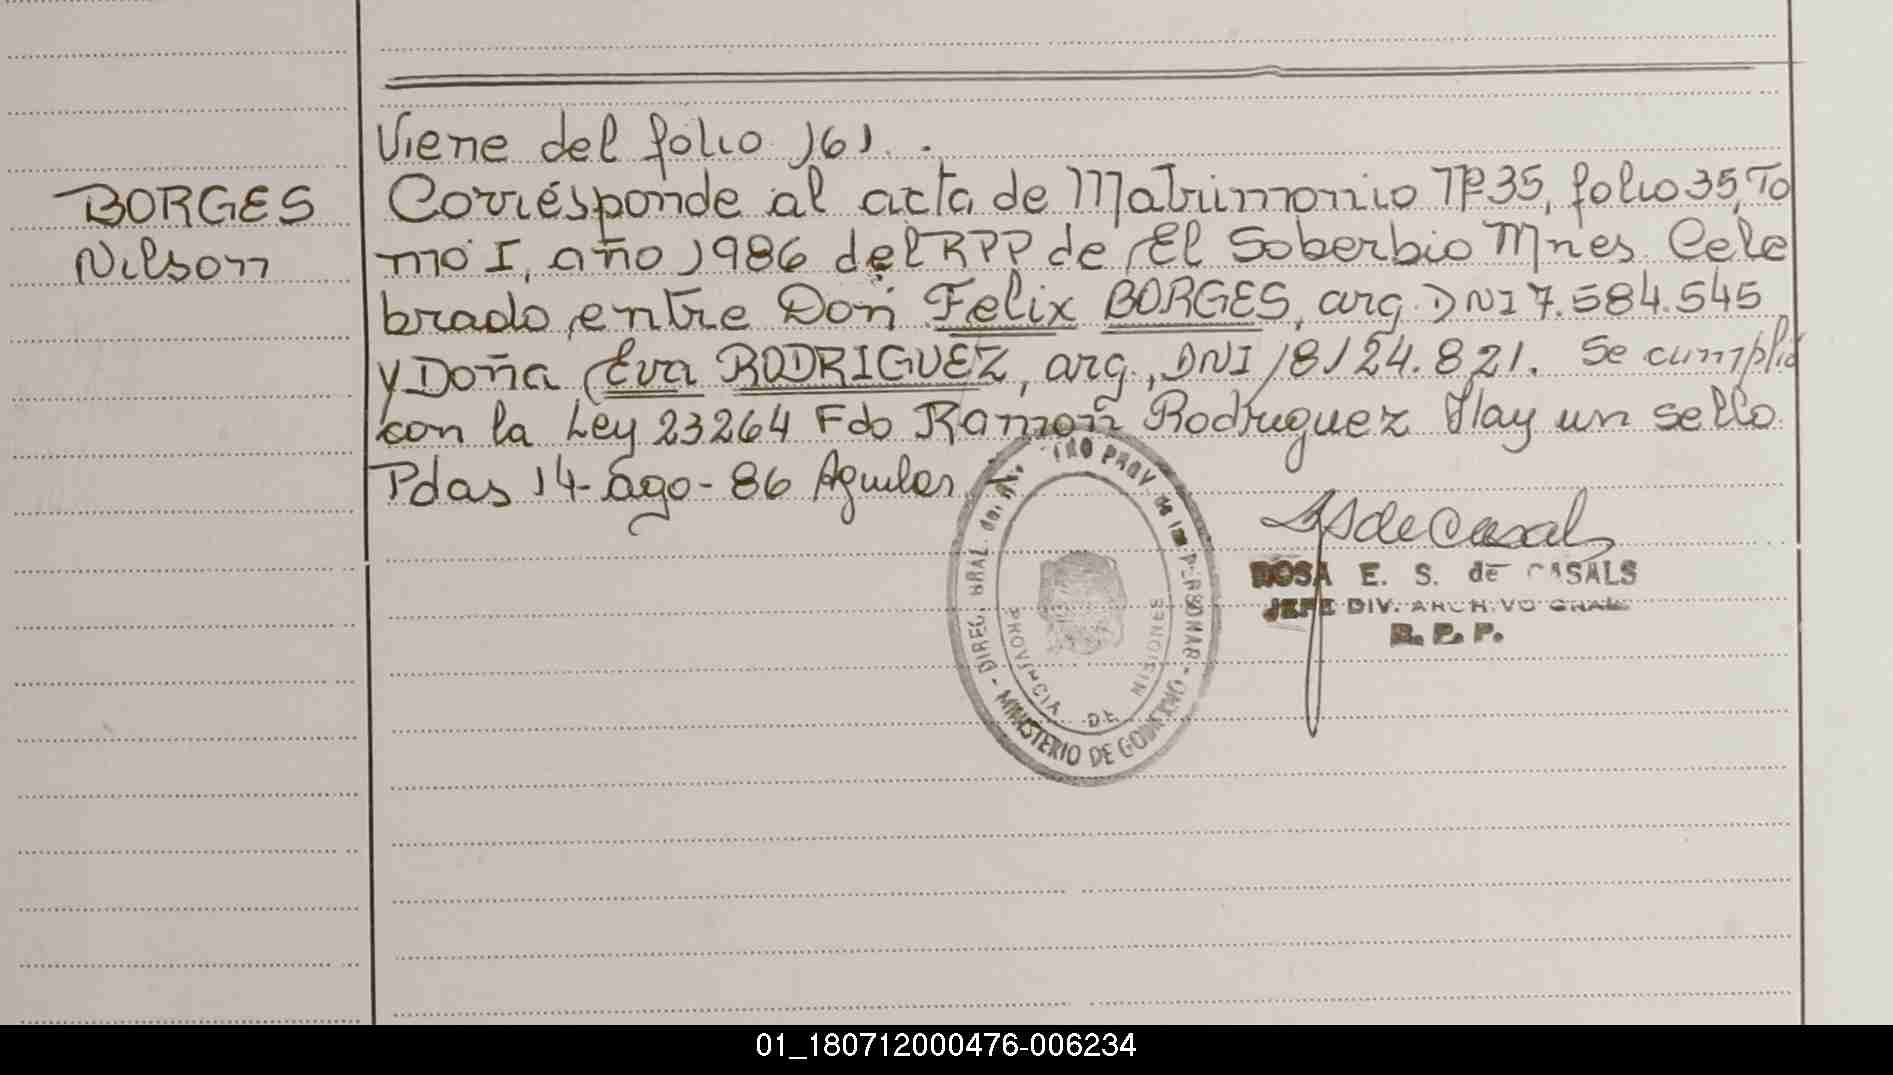 Viene del folio 161.
BORGES
Nilson
Corresponde al acta de Matrimonio Nº 35, folio 35, To
mo I, año 1986 del RPP de El Soberbio Mnes. Cele
brado entre Don Felix BORGES, arg. DNI 7.584.545
y Doña Eva RODRIGUEZ, arg., DNI 18124.821. Se cumplió
con la Ley 23264 Fdo Ramon Rodriguez Hay un sello
Pdas 14-ago-86 Aguilar
ROSA E. S. de CASALS
JEFE DIV. ARCHIVO GRAL
R. P. P.
DIREC. GRAL. del PROV. de las PERSONAS
- MINISTERIO DE GOBIERNO -
PROVINCIA DE MISIONES
01_180712000476-006234